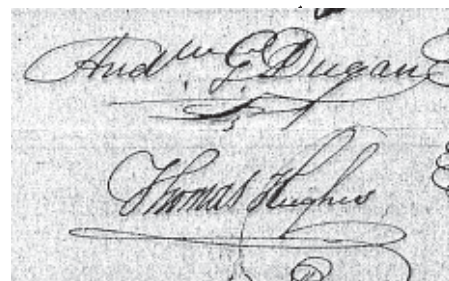 Andw G. Dugan
Thomas Hughes